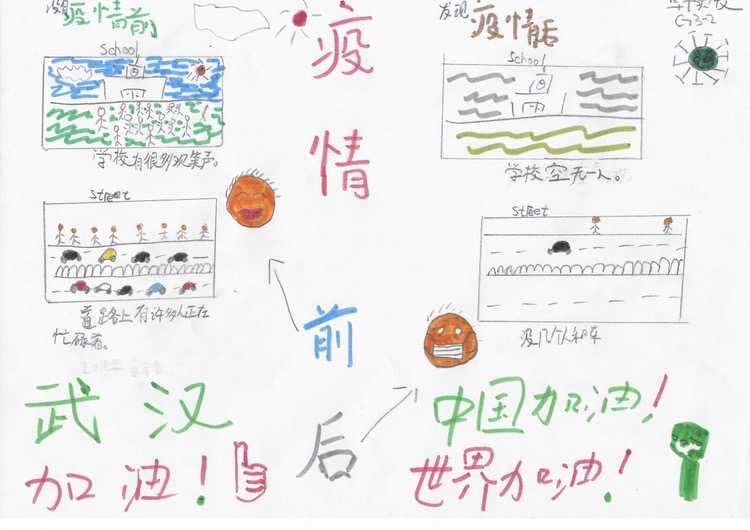 疫情前
School
学校有很多欢笑声。
street
路上有许多人正在
忙碌着。
疫
情
前
后
发现
疫情后
G3-2
School
学校空无一人。
street
没几个人和车
武汉
加油！
中国加油！
世界加油！